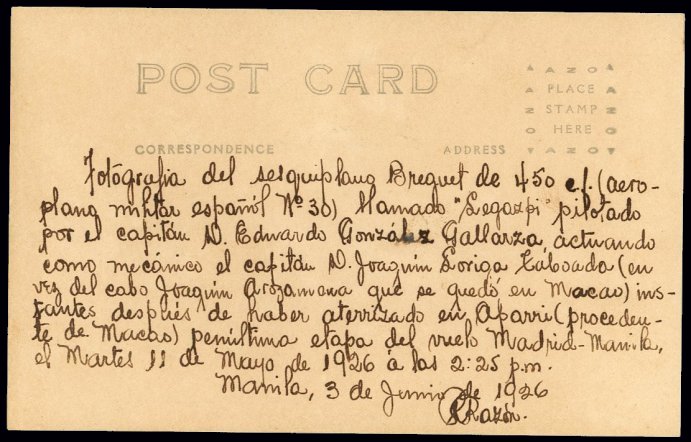 POST CARD
AZOA
PLACE
STAMP
HERE
AZOA
CORRESPONDENCE
ADDRESS
Fotografia del sesquiplano Breguet de 450 c.f. (aero-
plano militar español Nº 30) llamado "Legazpi" pilotado
por el capitán D. Eduardo González Gallarza, actuando
como mecánico el capitán D. Joaquin Loriga Taboada (en
vez del cabo Joaquin Arozamena que se quedó en Macao) ins-
tantes después de haber aterrizado en Aparri (proceden-
te de Macao) penúltima etapa del vuelo Madrid-Manila,
el Martes 11 de Mayo de 1926 á las 2:25 p.m.
Manila, 3 de Junio de 1926
Razón.